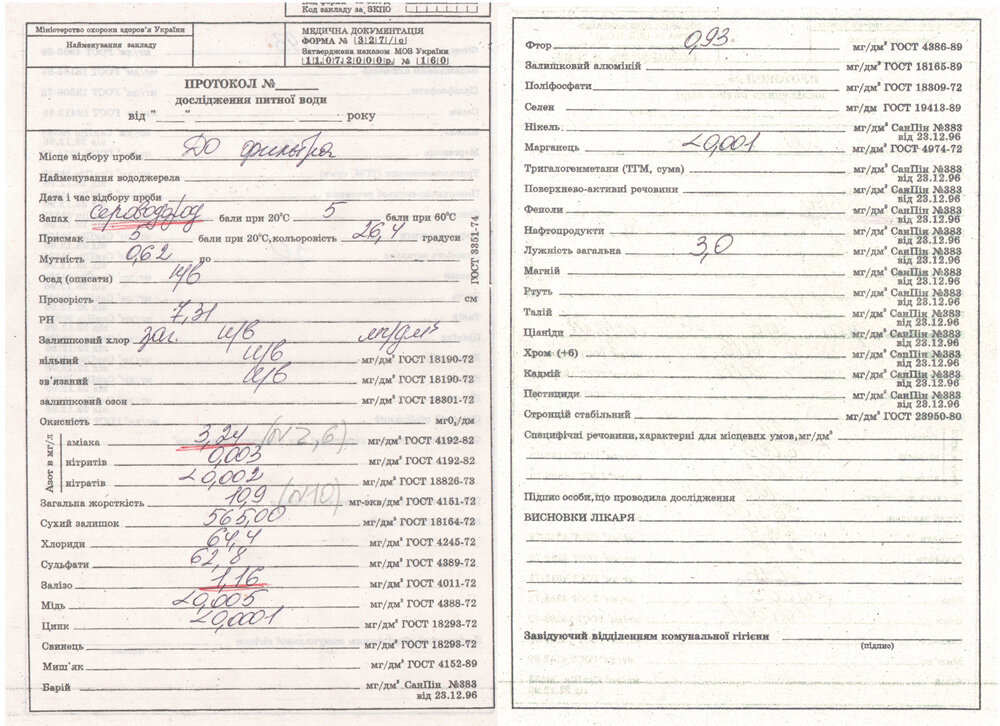 Код закладу за ЗКПО
Міністерство охорони здоров'я України
Найменування закладу
МЕДИЧНА ДОКУМЕНТАЦІЯ
ФОРМА № 327/о
Затверджена наказом МОЗ України
11072000р. № 160
ПРОТОКОЛ №
дослідження питної води
від " " року
Місце відбору проби До фильтра
Найменування вододжерела
Дата і час відбору проби
Запах сероводород бали при 20°С 5 бали при 60°С
Присмак 5 бали при 20°С, кольоровість 26,4 градуси
Мутність 0,62 по
ГОСТ 3351-74
Осад (описати) н/в
Прозорість см
РН 7,31
Залишковий хлор заг. н/в мг/дм³
вільний н/в мг/дм³ ГОСТ 18190-72
зв'язаний н/в мг/дм³ ГОСТ 18190-72
залишковий озон мг/дм³ ГОСТ 18301-72
Окисність мгО₂/дм
Азот в мг/л
аміака 3,24 (N 2,6) мг/дм³ ГОСТ 4192-82
нітритів 0,003 мг/дм³ ГОСТ 4192-82
нітратів <0,002 мг/дм³ ГОСТ 18826-73
Загальна жорсткість 10,9 (N 10) мг-экв/дм³ ГОСТ 4151-72
Сухий залишок 565,00 мг/дм³ ГОСТ 18164-72
Хлориди 64,4 мг/дм³ ГОСТ 4245-72
Сульфати 62,8 мг/дм³ ГОСТ 4389-72
Залізо 1,16 мг/дм³ ГОСТ 4011-72
Мідь <0,005 мг/дм³ ГОСТ 4388-72
Цинк <0,0001 мг/дм³ ГОСТ 18293-72
Свинець мг/дм³ ГОСТ 18293-72
Миш'як мг/дм³ ГОСТ 4152-89
Барій мг/дм³ СанПін №383
від 23.12.96
Фтор 0,93 мг/дм³ ГОСТ 4386-89
Залишковий алюміній мг/дм³ ГОСТ 18165-89
Поліфосфати мг/дм³ ГОСТ 18309-72
Селен мг/дм³ ГОСТ 19413-89
Нікель мг/дм³ СанПін №383
від 23.12.96
Марганець <0,001 мг/дм³ ГОСТ 4974-72
Тригалогенметани (ТГМ, сума) мг/дм³ СанПін №383
від 23.12.96
Поверхнево-активні речовини мг/дм³ СанПін №383
від 23.12.96
Феноли мг/дм³ СанПін №383
від 23.12.96
Нафтопродукти мг/дм³ СанПін №383
від 23.12.96
Лужність загальна 3,0 мг/дм³ СанПін №383
від 23.12.96
Магній мг/дм³ СанПін №383
від 23.12.96
Ртуть мг/дм³ СанПін №383
від 23.12.96
Талій мг/дм³ СанПін №383
від 23.12.96
Ціаніди мг/дм³ СанПін №383
від 23.12.96
Хром (+6) мг/дм³ СанПін №383
від 23.12.96
Кадмій мг/дм³ СанПін №383
від 23.12.96
Пестициди мг/дм³ СанПін №383
від 23.12.96
Стронцій стабільний мг/дм³ ГОСТ 23950-80
Специфічні речовини, характерні для місцевих умов, мг/дм³
Підпис особи, що проводила дослідження
ВИСНОВКИ ЛІКАРЯ
Завідуючий відділенням комунальної гігієни
(підпис)